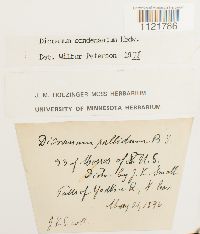 1121786
Dicranum condensatum Hedw.
Det. Wilbur Peterson 1977
J. M. HOLZINGER MOSS HERBARIUM
UNIVERSITY OF MINNESOTA HERBARIUM
Dicranum pallidum B S
of Mosses of U.S.
Distr. by J. K. Small
Falls of Yadkin R., N. Car.